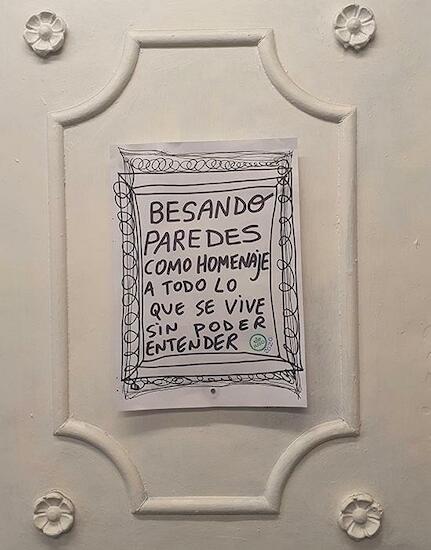 BESANDO
PAREDES
COMO HOMENAJE
A TODO LO
QUE SE VIVE
SIN PODER
ENTENDER